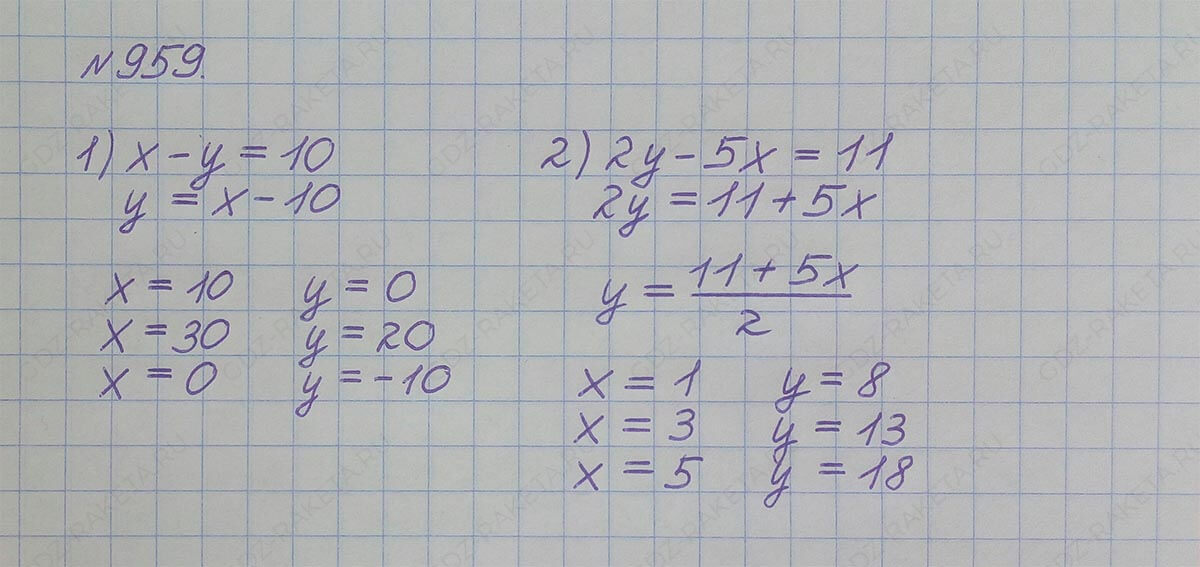 №959.
1) x - y = 10
y = x - 10
x = 10 y = 0
x = 30 y = 20
x = 0 y = -10
2) 2y - 5x = 11
2y = 11 + 5x
y = (11 + 5x)/2
x = 1 y = 8
x = 3 y = 13
x = 5 y = 18
GDZ-RAKETA.RU